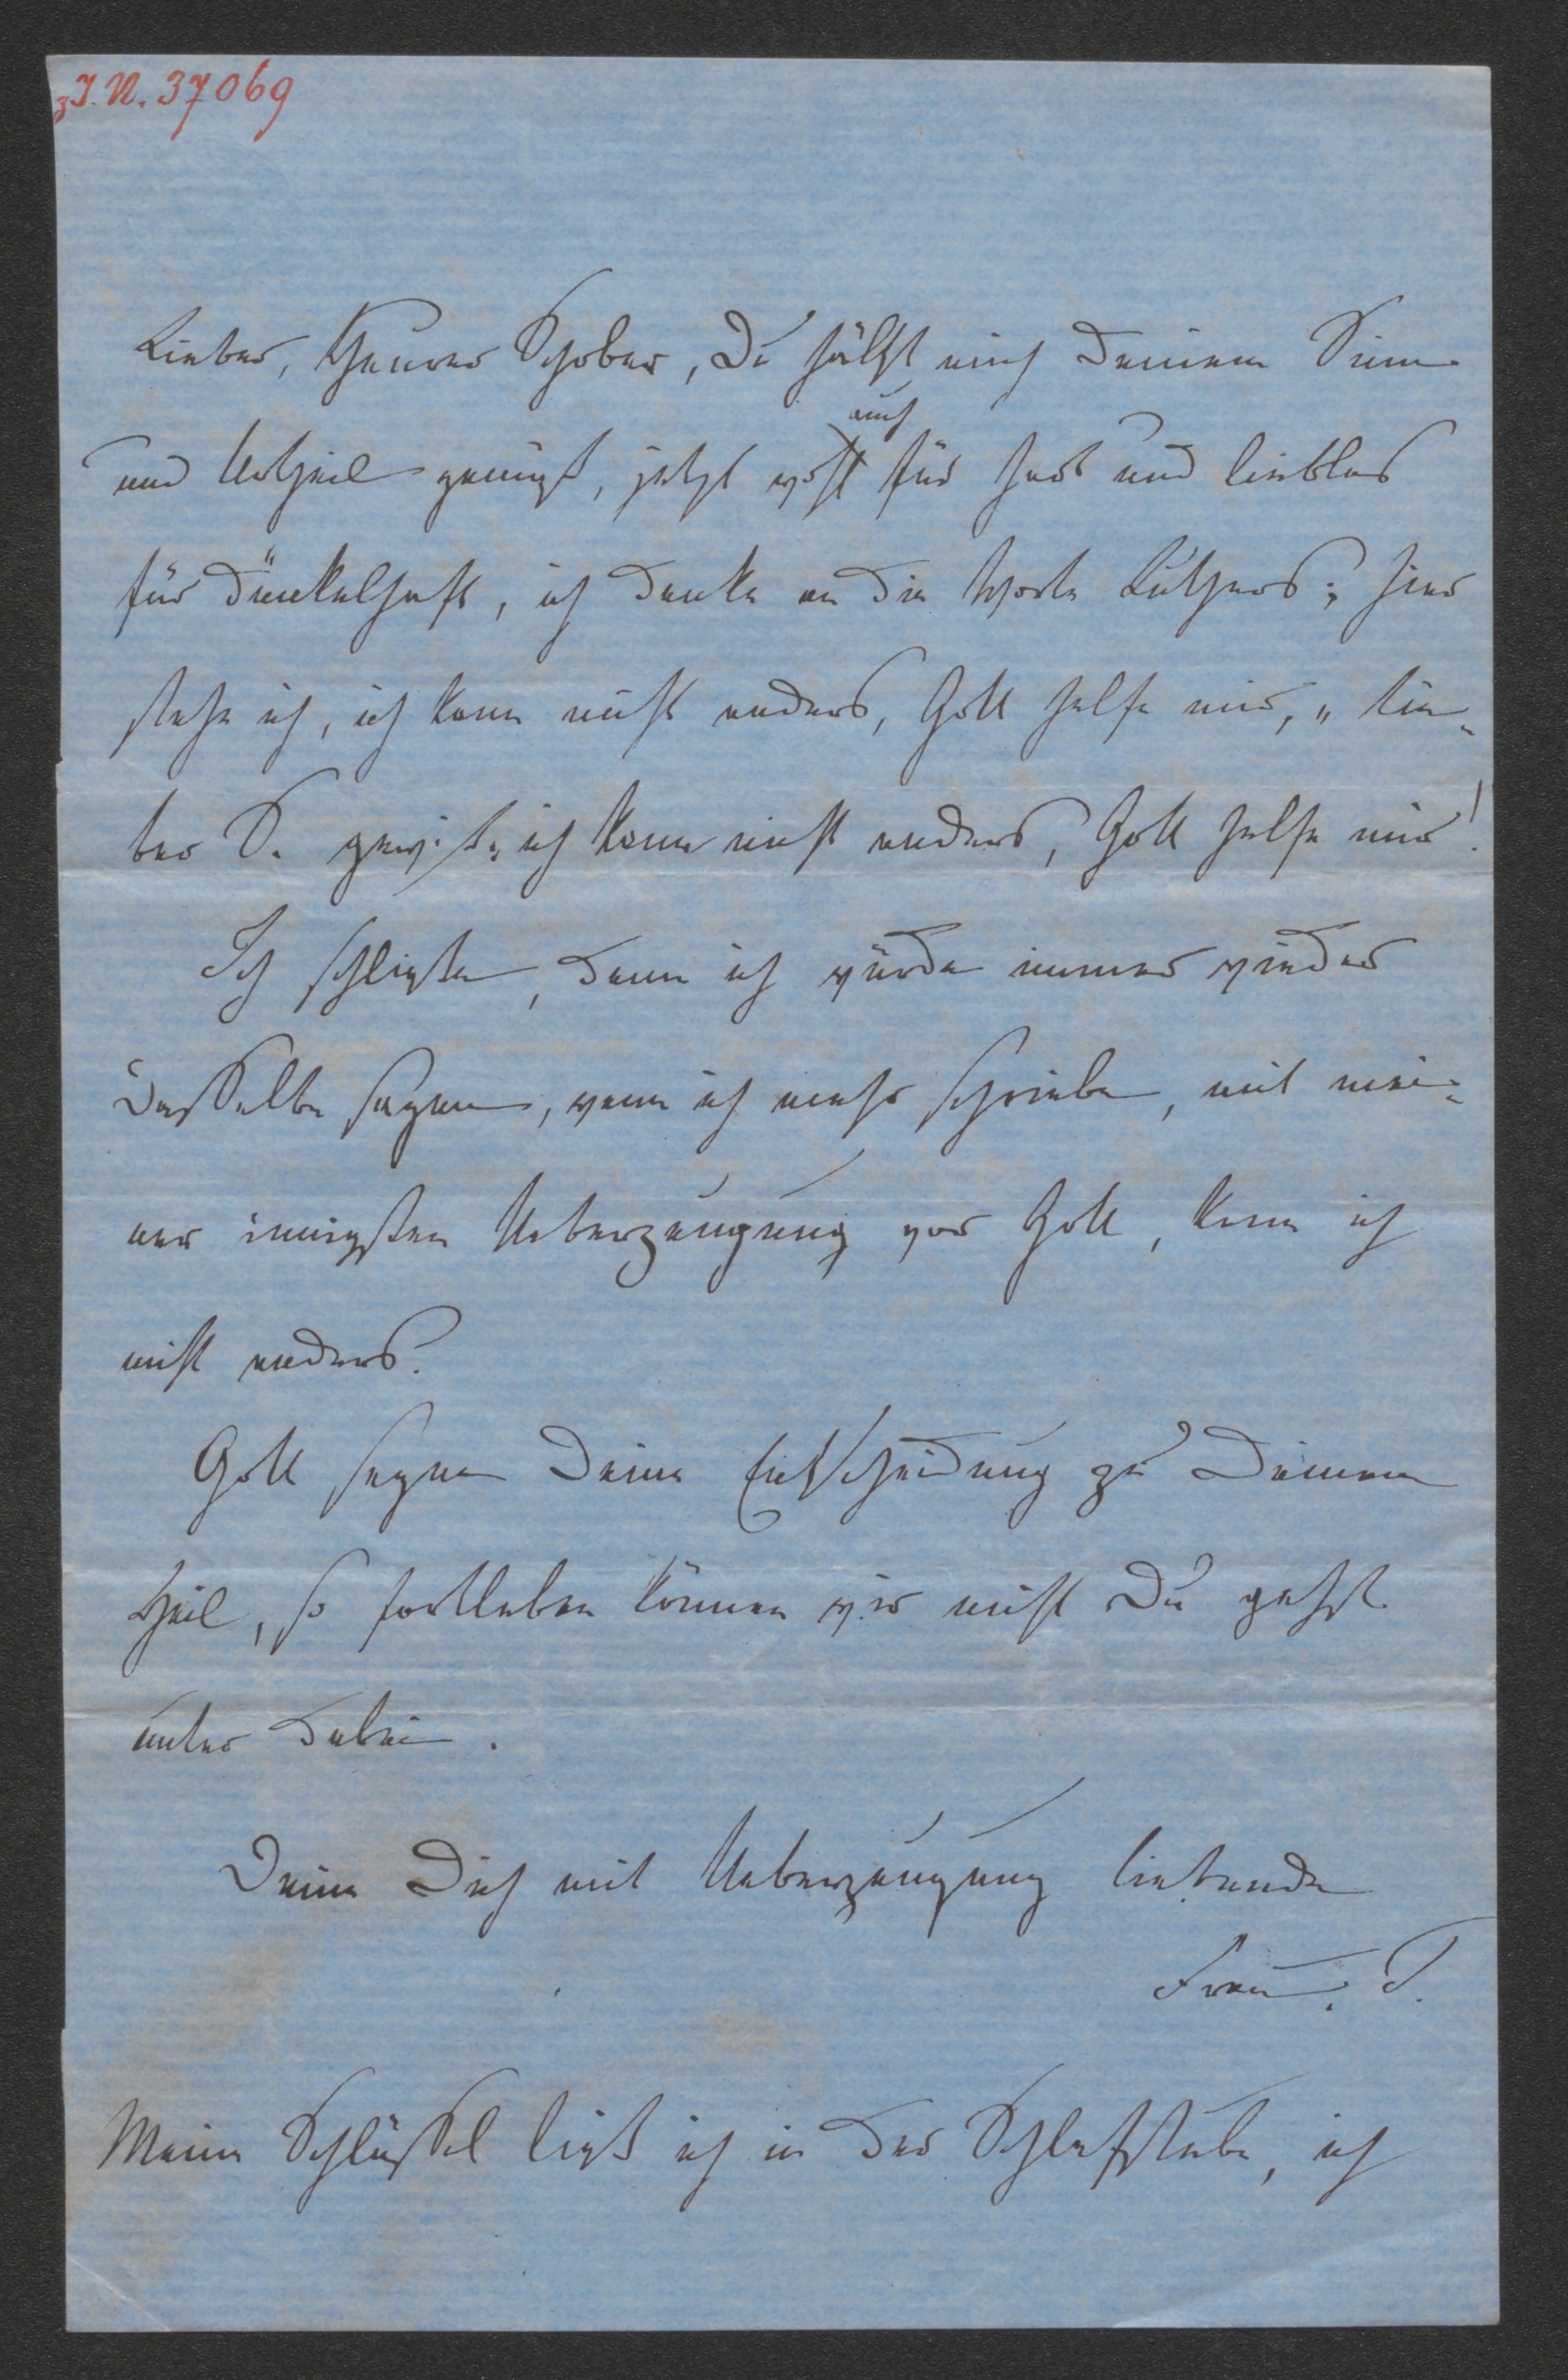 z I.N. 37069
Lieber, theurer Schober, Du hältst mich Deinem Sinn
und Urtheil gemäß, jetzt wohl auch für hart und lieblos
für dünkelhaft, ich denke an die Worte Luthers; hier
stehe ich, ich kann nicht anders, Gott helfe mir, „ lie-
ber S. gewiß, ich kann nicht anders, Gott helfe mir!
Ich schließe, denn ich würde immer wieder
dasselbe sagen, wenn ich mehr schriebe, mit mei-
ner innigsten Ueberzeugung vor Gott, kann ich
nicht anders.
Gott segne Deine Entscheidung zu Deinem
Heil, so fortleben können wir nicht Du gehst
unter dabei.
Deine Dich mit Ueberzeugung liebende
Frau. T.
Meine Schlüssel ließ ich in der Schlafstube, ich